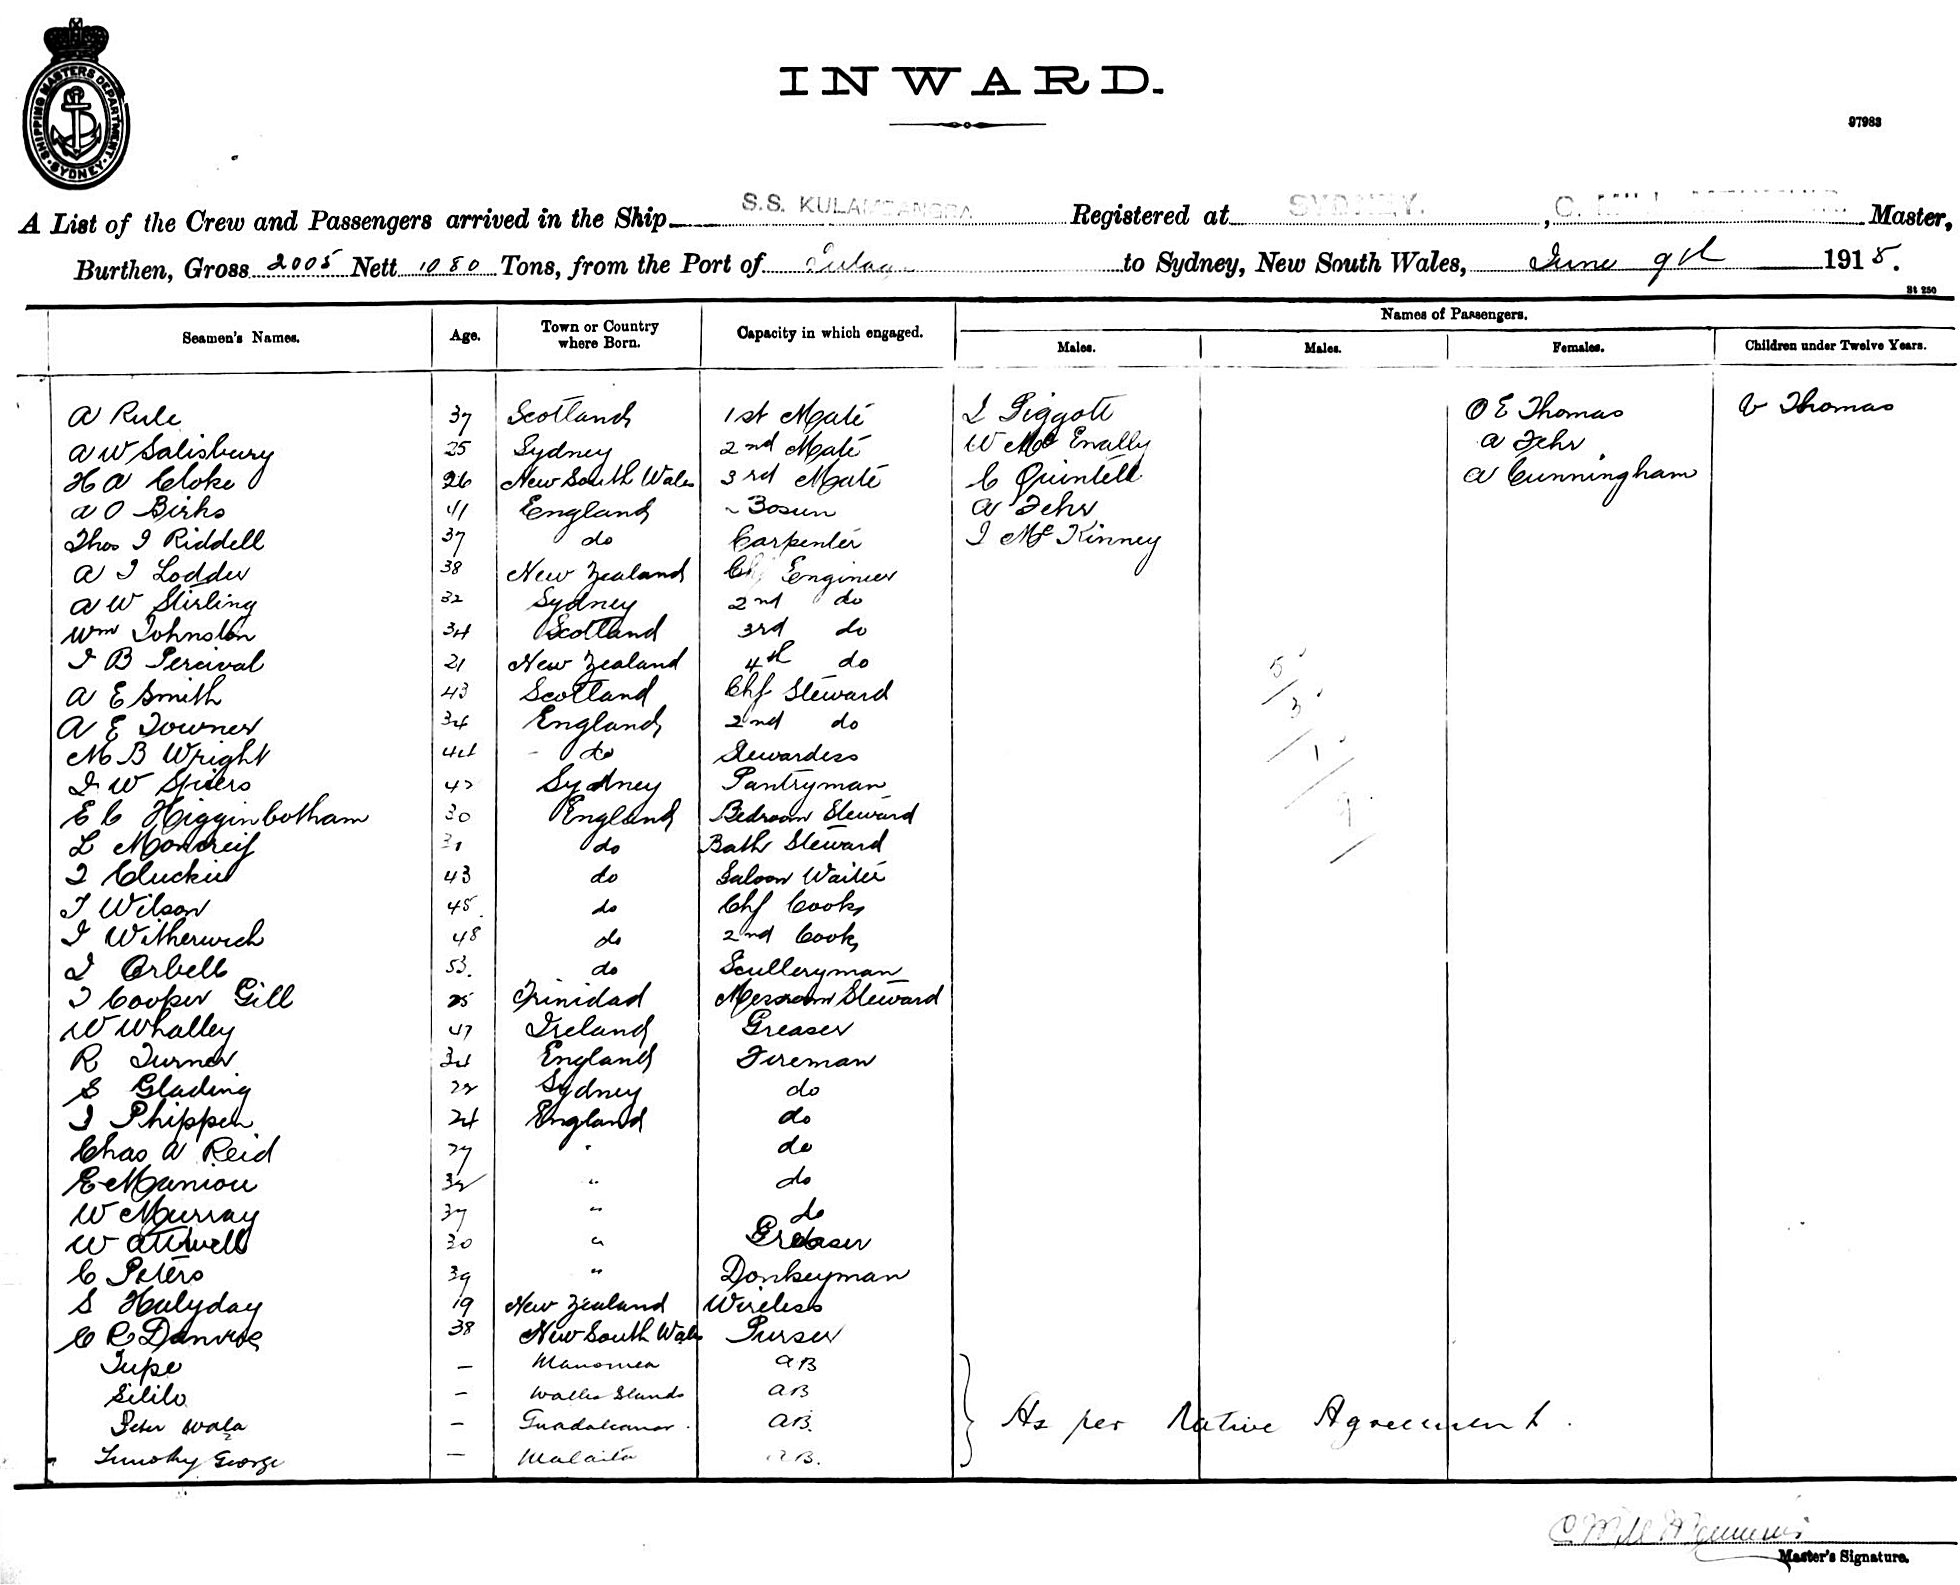 SHIPPING MASTERS DEPARTMENT
SYDNEY
INWARD.
97983
A List of the Crew and Passengers arrived in the Ship S.S. KULAMBANGRA Registered at SYDNEY. , C. Master,
Burthen, Gross 2005 Nett 1080 Tons, from the Port of Tulagi to Sydney, New South Wales, June 9th 1918.
St 250
Seamen's Names. Age. Town or Country where Born. Capacity in which engaged. Names of Passengers.
Males. Males. Females. Children under Twelve Years.
A Rule 37 Scotland 1st Mate I Piggott O E Thomas V Thomas
A W Salisbury 25 Sydney 2nd Mate W Mc Enally A Fehr
H A Cloke 26 New South Wales 3rd Mate C Quintell A Cunningham
A O Birks 41 England Bosun A Fehr
Thos J Riddell 37 do Carpenter J Mc Kinney
A J Lodder 38 New Zealand Chf Engineer
A W Stirling 32 Sydney 2nd do
Wm Johnston 34 Scotland 3rd do
J B Percival 21 New Zealand 4th do 5
A E Smith 43 Scotland Chf Steward 3
A E Towner 34 England 2nd do
M B Wright 44 do Stewardess 1
J W Spiers 42 Sydney Pantryman 9
E C Higginbotham 30 England Bedroom Steward
L Moncreif do Bath Steward
J Cluckie 43 do Saloon Waiter
J Wilson 45 do Chf Cook
J Witherwich 48 do 2nd Cook
J Orbell 53. do Sculleryman
J Cooper Gill 25 Trinidad Messroom Steward
W Whalley 47 Ireland Greaser
R Turner 34 England Fireman
S Glading 22 Sydney do
J Phippen 24 England do
Chas A Reid 27 " do
E Maniou 32 " do
W Murray 37 " do
W Attwell 30 " Greaser
C Peters 39 " Donkeyman
S Halyday 19 New Zealand Wireless
C R Danvers 38 New South Wales Purser
Tupe — Manomea AB
Sililo — Wallis Islands AB
Peter Wala — Guadalcanar AB. As per Native Agreement.
Timothy George — Malaita AB.
Master's Signature.